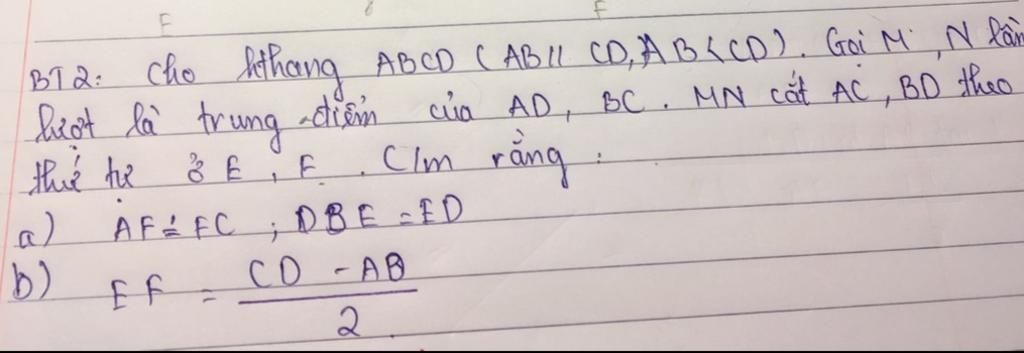 E F
BT2: Cho hthang ABCD (AB // CD, AB < CD). Gọi M, N lần
lượt là trung điểm của AD, BC. MN cắt AC, BD theo
thứ tự ở E, F. C/m rằng:
a) AF = FC ; DBE = ED
b) EF = \frac{CD - AB}{2}